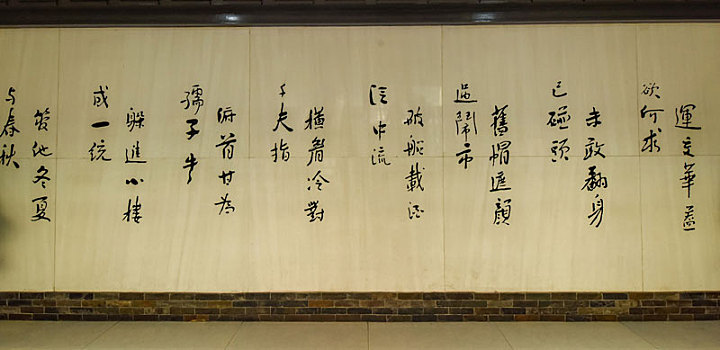 運交華蓋
欲何求
未敢翻身
已碰頭
舊帽遮顏
過鬧市
破船載酒
泛中流
橫眉冷對
千夫指
俯首甘為
孺子牛
躲進小樓
成一統
管他冬夏
与春秋